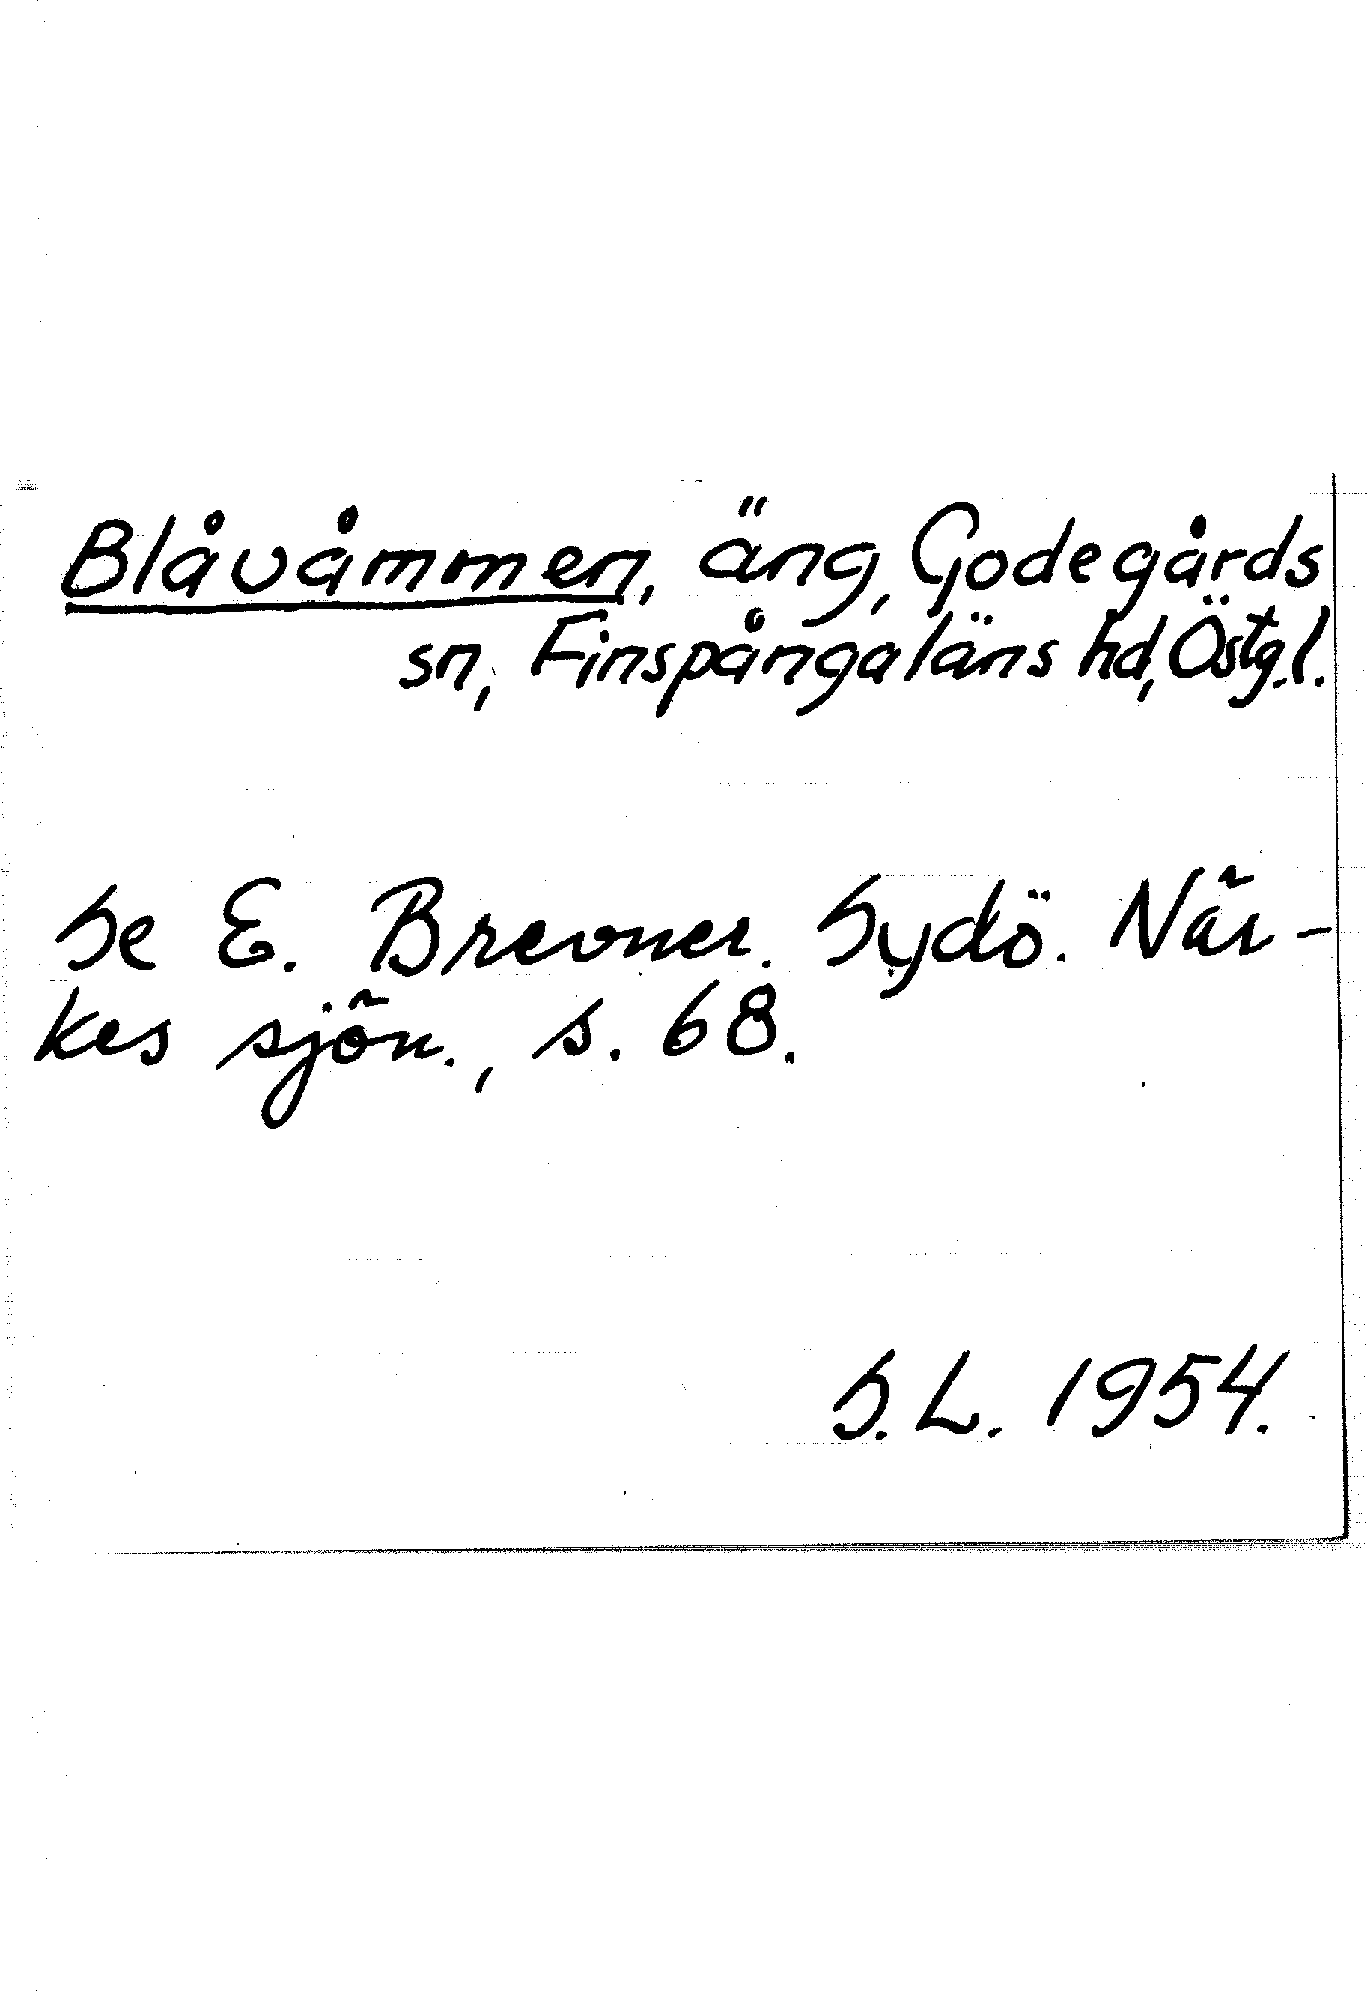 Blåvåmmen, äng, Godegårds
sn, Finspångaläns hd, Östg.l.
Se E. Brevner. Sydö. När-
kes sjön., s. 68.
S. L. 1954.